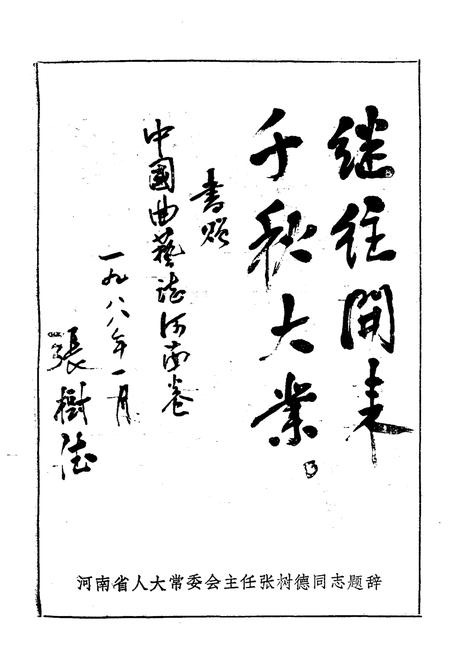 继往開来
千秋大业
书贻
中國曲藝誌河南卷
一九八八年一月
張樹德
河南省人大常委会主任张树德同志题辞